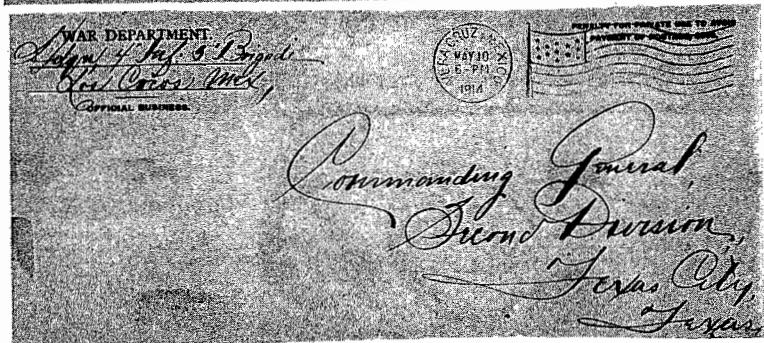 WAR DEPARTMENT.
Hdqn 4" Inf. 5" Brigade
Los Cocos Mex,
OFFICIAL BUSINESS.
VERA CRUZ, MEXICO
MAY 10
6-PM
1914
PENALTY FOR PRIVATE USE TO AVOID
PAYMENT OF POSTAGE, $300.
Commanding General,
Second Division,
Texas City,
Texas